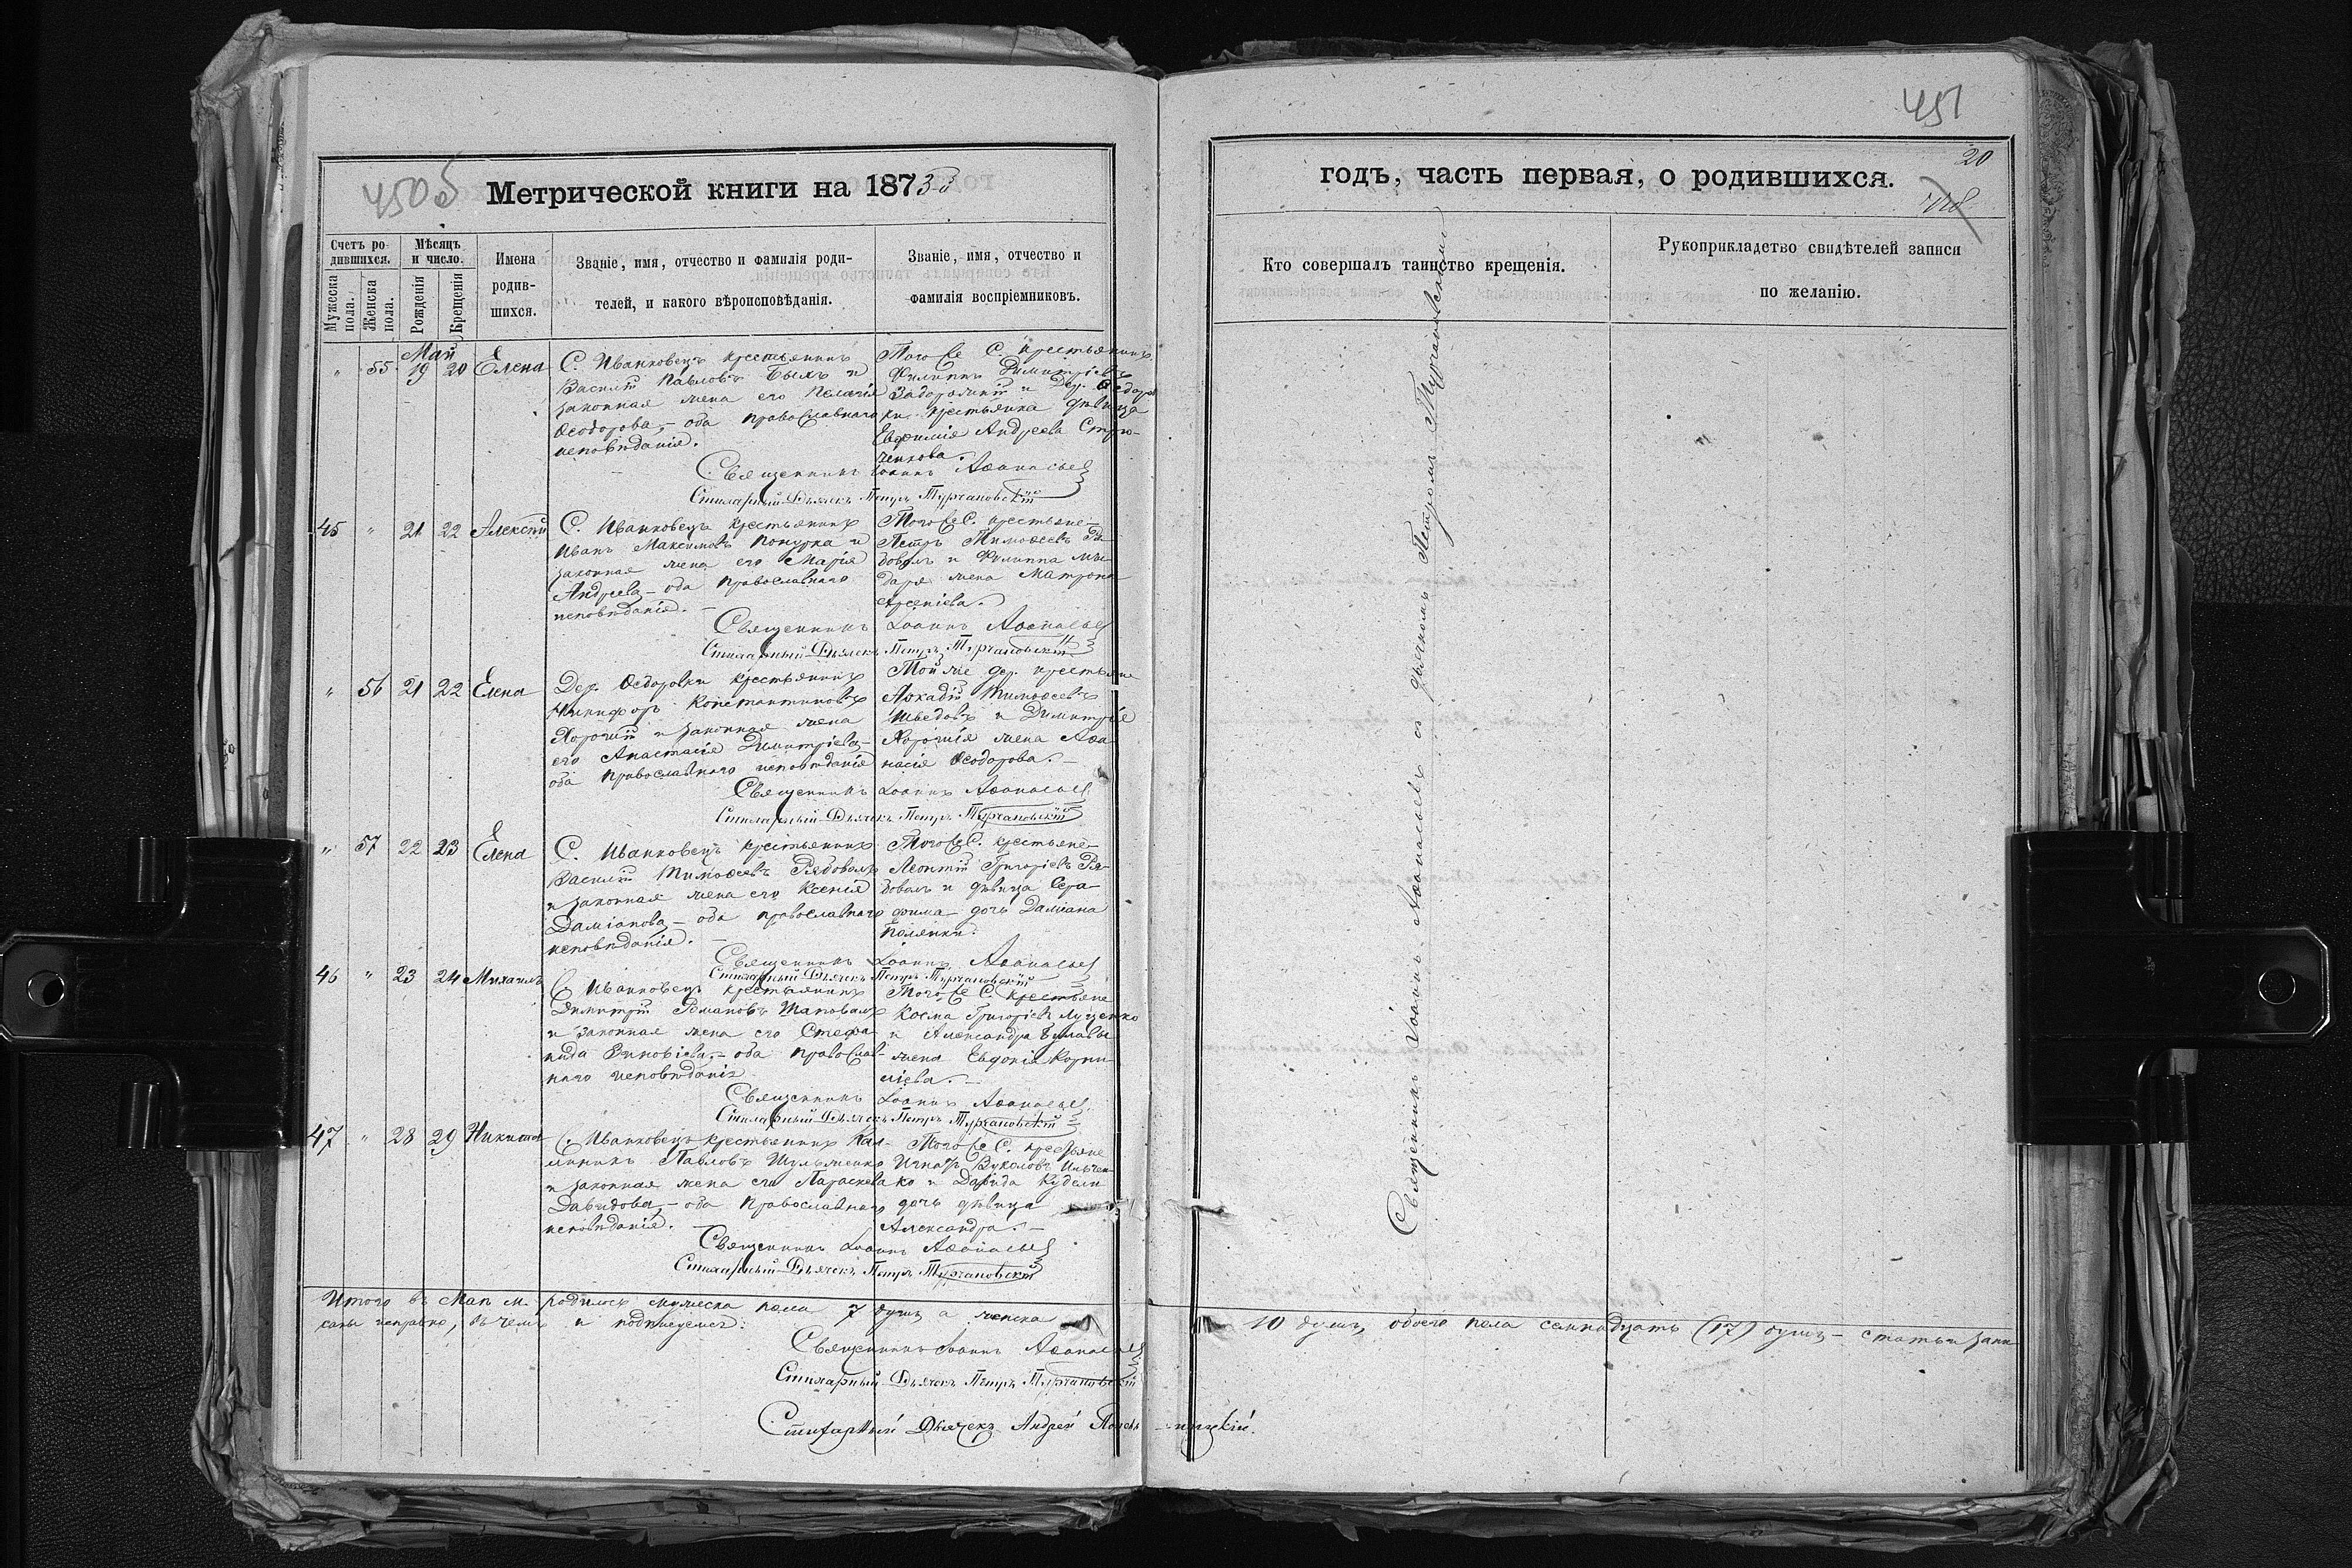 450 б
Метрической книги на 1873
Счетъ ро-
дившихся.
Мужеска пола.
Женска пола.
Мѣсяцъ
и число.
Рожденія
Крещенія
Имена
родив-
шихся.
Званіе, имя, отчество и фамилія роди-
телей, и какого вѣроисповѣданія.
Званіе, имя, отчество и
фамилія воспріемниковъ.
Май
" 55 19 20 Елена
С. Иванковецъ крестьянинъ
Василій Павловъ Быкъ и
законная жена его Пелагія
Ѳеодорова, – оба православнаго
исповѣданія.
Того же С. крестьянинъ
Филиппъ Димитріевъ
Задорожній и Дер. Ѳедоров
ки крестьянка дѣвица
Евфимія Андреева Стрю-
ченкова.
Священникъ Іоаннъ Аѳанасьев
Стихарный Дьячекъ Петръ Турчановскій
45 " 21 22 Алексѣй
С. Иванковецъ крестьянинъ
Иванъ Максимовъ Покурка и
законная жена его Марія
Андреева – оба православнаго
исповѣданія. –
Того же С. крестьяне –
Петръ Тимоѳеевъ Ря-
довалъ и Филиппа
жена Матрона
Арсеніева.
Священникъ Іоаннъ Аѳанасьев
Стихарный Дьячекъ Петръ Турчановскій
" 56 21 22 Елена
Дер. Ѳедоровки крестьянинъ
Никифоръ Константиновъ
Хорошій и законная жена
его Анастасія Димитріева –
оба православнаго исповѣданія
Той же дер. крестьяне
Аркадій Тимоѳеевъ
Шведовъ и Димитрія
Хорошія жена Аѳа-
насія Ѳеодорова. –
Священникъ Іоаннъ Аѳанасьев
Стихарный Дьячекъ Петръ Турчановскій
" 57 22 23 Елена
С. Иванковецъ крестьянинъ
Василій Тимоѳеевъ Рядовалъ
и законная жена его Ксенія
Даміанова – оба православнаго
исповѣданія. –
Того же С. крестьяне –
Леонтій Григоріевъ Ря-
довалъ и дѣвица Сера-
фима – дочь Даміана
Полянки.
Священникъ Іоаннъ Аѳанасьев
Стихарный Дьячекъ Петръ Турчановскій
46 " 23 24 Михаилъ
С. Иванковецъ крестьянинъ
Димитрій Романовъ Шаповалъ
и законная жена его Стефа-
нида Зиновіева, – оба православ-
наго исповѣданія
Того же С. крестьяне
Косма Григоріевъ Луценко
и Александра Булавы
жена Евдокія Корни-
ліева. –
Священникъ Іоаннъ Аѳанасьев
Стихарный Дьячекъ Петръ Турчановскій
47 " 28 29 Никита
С. Иванковецъ крестьянинъ Кал-
линикъ Павловъ Шульженко
и законная жена его Параскева
Давидова, – оба православнаго
исповѣданія. –
Того же С. крестьяне
Игнатъ Вуколовъ Ильчен-
ко и Давида Кудели
дочь дѣвица
Александра. –
Священникъ Іоаннъ Аѳанасьев
Стихарный Дьячекъ Петръ Турчановскій
Итого въ Маѣ м. родилось мужеска пола 7 душъ, а женска
саны исправно, въ чемъ и подписуемся:
Священникъ Іоаннъ Аѳанасьев
Стихарный Дьячекъ Петръ Турчановскій
Стихарный Дьячекъ Андрей
451
20
годъ, часть первая, о родившихся.
Кто совершалъ таинство крещенія.
Рукоприкладство свидѣтелей записи
по желанію.
Священникъ Іоаннъ Аѳанасьевъ съ дьячкомъ Петромъ Турчановскимъ
10 душъ, обоего пола семнадцать (17) душъ – статьи запи